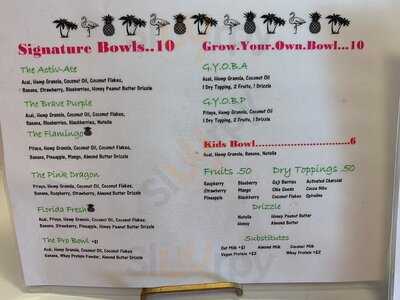 Signature Bowls..10
The Activ-Ate
Acai, Hemp Granola, Coconut Oil, Coconut Flakes,
Banana, Strawberry, Blueberry, Honey Peanut Butter Drizzle
The Brave Purple
Acai, Hemp Granola, Coconut Oil, Coconut Flakes,
Banana, Blueberry, Blackberries, Nutella
The Flamingo
Pitaya, Hemp Granola, Coconut Oil, Coconut Flakes,
Banana, Pineapple, Mango, Almond Butter Drizzle
The Pink Dragon
Pitaya, Hemp Granola, Coconut Oil, Coconut Flakes,
Banana, Raspberry, Strawberry, Almond Butter Drizzle
Florida Fresh
Acai, Hemp Granola, Coconut Oil, Coconut Flakes,
Banana, Strawberry, Pineapple, Honey Peanut Butter Drizzle
The Pro Bowl +$1
Acai, Hemp Granola, Coconut Oil, Coconut Flakes,
Banana, Whey Protein Powder, Almond Butter Drizzle
Grow.Your.Own.Bowl...10
G.Y.O.B.A
Acai, Hemp Granola, Coconut Oil
1 Dry Topping, 2 Fruits, 1 Drizzle
G.Y.O.B.P
Pitaya, Hemp Granola, Coconut Oil
1 Dry Topping, 2 Fruits, 1 Drizzle
Kids Bowl..............................6
Acai, Hemp Granola, Banana, Nutella
Fruits .50 Dry Toppings .50
Raspberry Blueberry Goji Berries Activated Charcoal
Strawberry Mango Chia Seeds Cacao Nibs
Pineapple Blackberry Coconut Flakes Spirulina
Drizzle
Nutella Honey Peanut Butter
Honey Almond Butter
Substitutes
Oat Milk +$1 Almond Milk Coconut Milk
Vegan Protein +$2 Whey Protein +$2